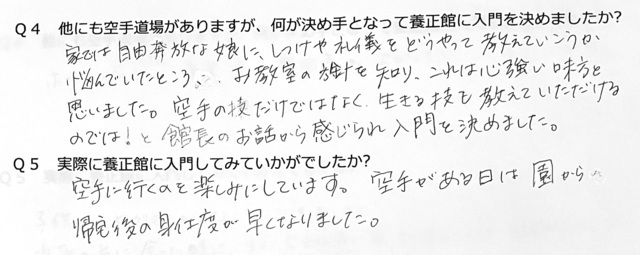 Q4 他にも空手道場がありますが、何が決め手となって養正館に入門を決めましたか?
家では自由奔放な娘に、しつけや礼儀をどうやって教えていこうか
悩んでいたところ、お教室の強みを知り、これは心強い味方と
思いました。空手の技だけではなく、生きる技も教えていただける
のでは!と館長のお話から感じられ入門を決めました。
Q5 実際に養正館に入門してみていかがでしたか?
空手に行くのを楽しみにしています。空手がある日は園から
帰宅後の身仕度が早くなりました。